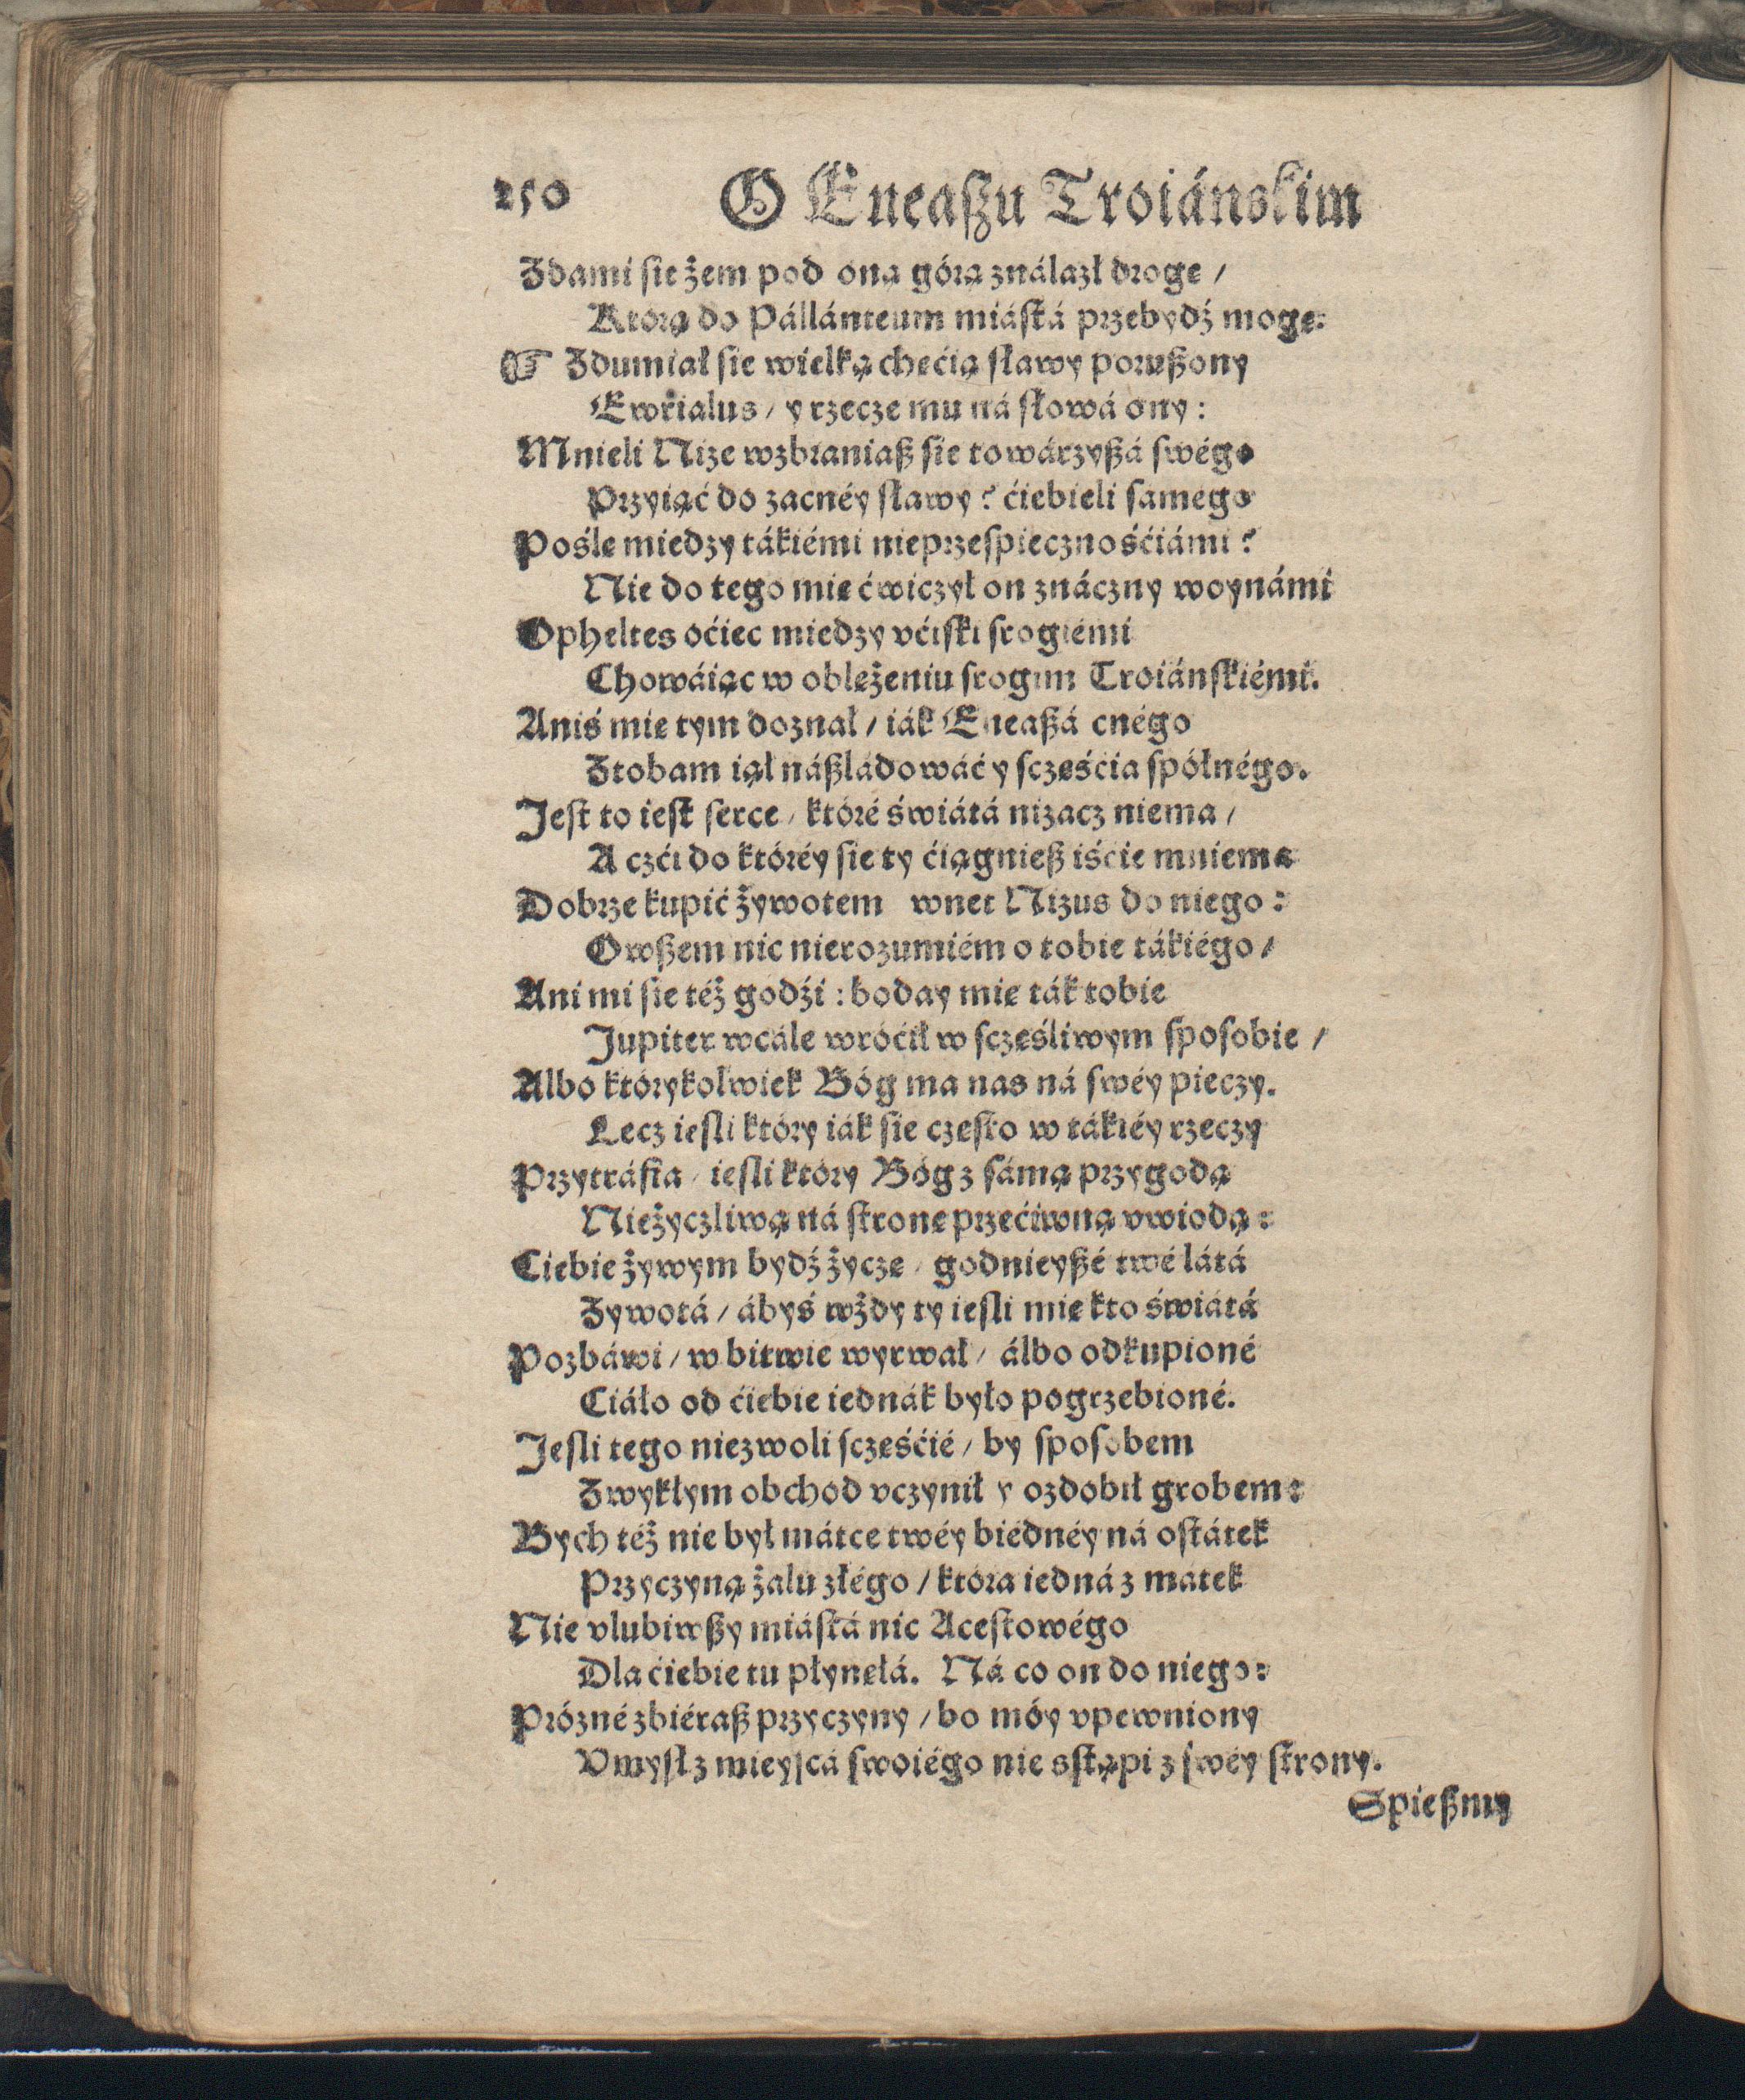 250 O Eneaſzu Troiánskim
Zdami ſie żem pod oną górą ználazł drogę /
Którą do Pállánteum miáſtá przebydź mogę:
☞ Zdumiał ſie wielką chęćią ſławy poruſzony
Ewrialus / y rzecze mu ná ſłowá ony:
Mnieli Nize wzbraniaſz ſie towárzyſzá ſwégo
Przyiąć do zacnéy ſławy? ćiebieli ſamego
Poślę miedzy tákiémi nieprzeſpiecznośćiámi?
Nie do tego mię ćwiczył on znáczny woynámi
Opheltes oćiec miedzy vćiſki ſrogiémi
Chowáiąc w oblężeniu ſrogim Troiánſkiémi.
Aniś mię tym doznał / iák Eneaſzá cnégo
Ztobam iął náſzládowáć y ſczęśćia ſpółnégo.
Jeſt to ieſt ſerce / któré świátá nizacz niema /
A czći do któréy ſie ty ćiągnieſz iśćie mniema
Dobrze kupić żywotem wnet Nizus do niego:
Owſzem nic nierozumiém o tobie tákiégo /
Ani mi ſie téż godźi: boday mię ták tobie
Jupiter wcále wróćił w ſczęśliwym ſpoſobie /
Albo którykolwiek Bóg ma nas ná ſwéy pieczy.
Lecz ieſli który iák ſie częſto w tákiéy rzeczy
Przytráfia / ieſli który Bóg z ſámą przygodą
Nieżyczliwą ná ſtronę przećiwną vwiodą:
Ciebie żywym bydź życzę / godnieyſzé twé látá
Zywotá / ábyś wżdy ty ieſli mię kto świátá
Pozbáwi / w bitwie wyrwał / álbo odkupioné
Ciáło od ćiebie iednák było pogrzebioné.
Jeſli tego niezwoli ſczęśćié / by ſpoſobem
Zwykłym obchod vczynił y ozdobił grobem:
Bych téż nie był mátce twéy biédnéy ná oſtátek
Przyczyną żalu złégo / która iedná z mátek
Nie vlubiwſzy miáſtá nic Aceſtowégo
Dla ćiebie tu płynęłá. Ná co on do niego:
Prózné zbiéraſz przyczyny / bo móy vpewniony
Vmyſł z mieyſcá ſwoiégo nie sſtąpi z ſwéy ſtrony.
Spieſzmy